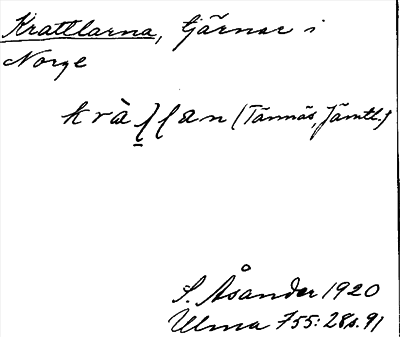 Krattlarna, tjärnar i
Norge
(Tännäs, Jämtl.)
S. Åsander 1920
Ulma 755:28 s. 91